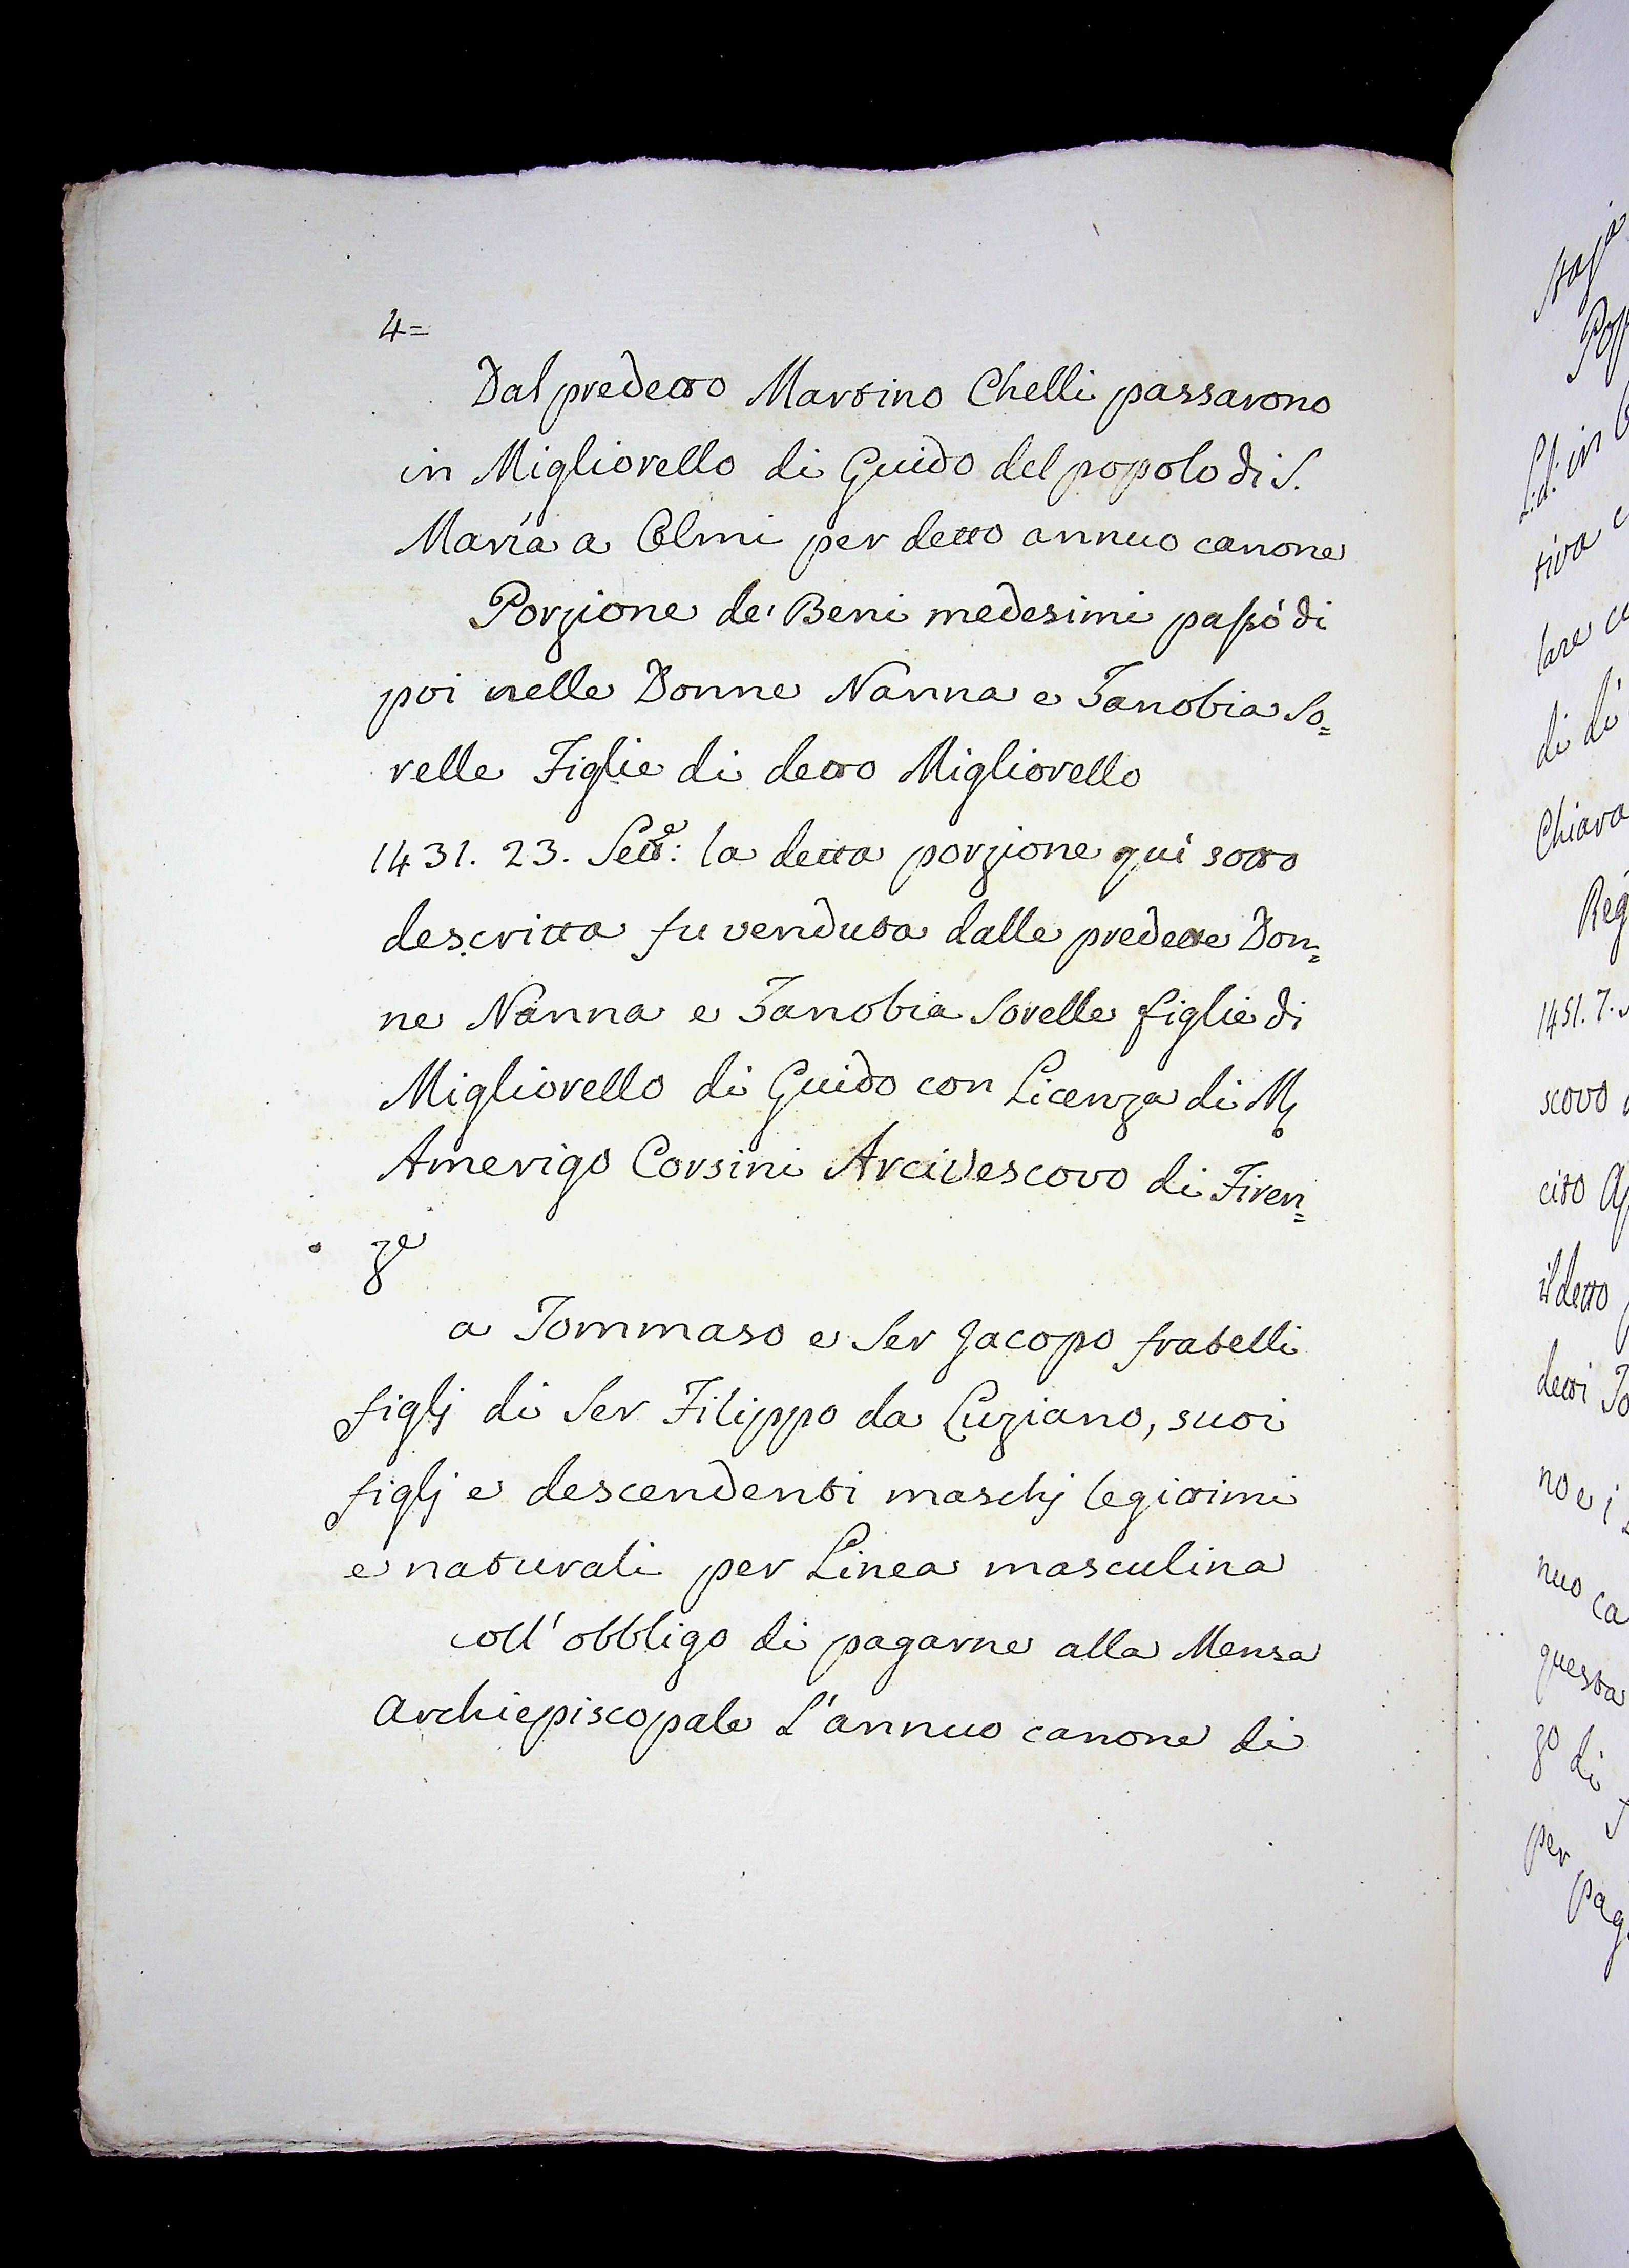 4=
Dal predetto Martino Chelli passarono
in Migliorello di Guido del popolo di S.
Maria a Olmi per detto annuo canone
Porzione de' Beni medesimi passò di
poi nelle Donne Nanna e Zanobia So=
relle Figlie di detto Migliorello
1431. 23. Sett.e: la detta porzione qui sotto
descritta fu venduta dalle predette Don=
ne Nanna e Zanobia Sorelle figlie di
Migliorello di Guido con Licenza di Mṛ
Amerigo Corsini Arcivescovo di Firen=
ze
a Tommaso e Ser Jacopo fratelli
figlj di Ser Filippo da Luziano, suoi
figlj e descendenti maschj legittimi
e naturali per Linea masculina
coll' obbligo di pagarne alla Mensa
Archiepiscopale L'annuo canone di
tiva
lare
di di
Chiara
1451. 7.
scovo
cito
il detto
detti
no e i
nuo ca
questa
zo di
per
pag